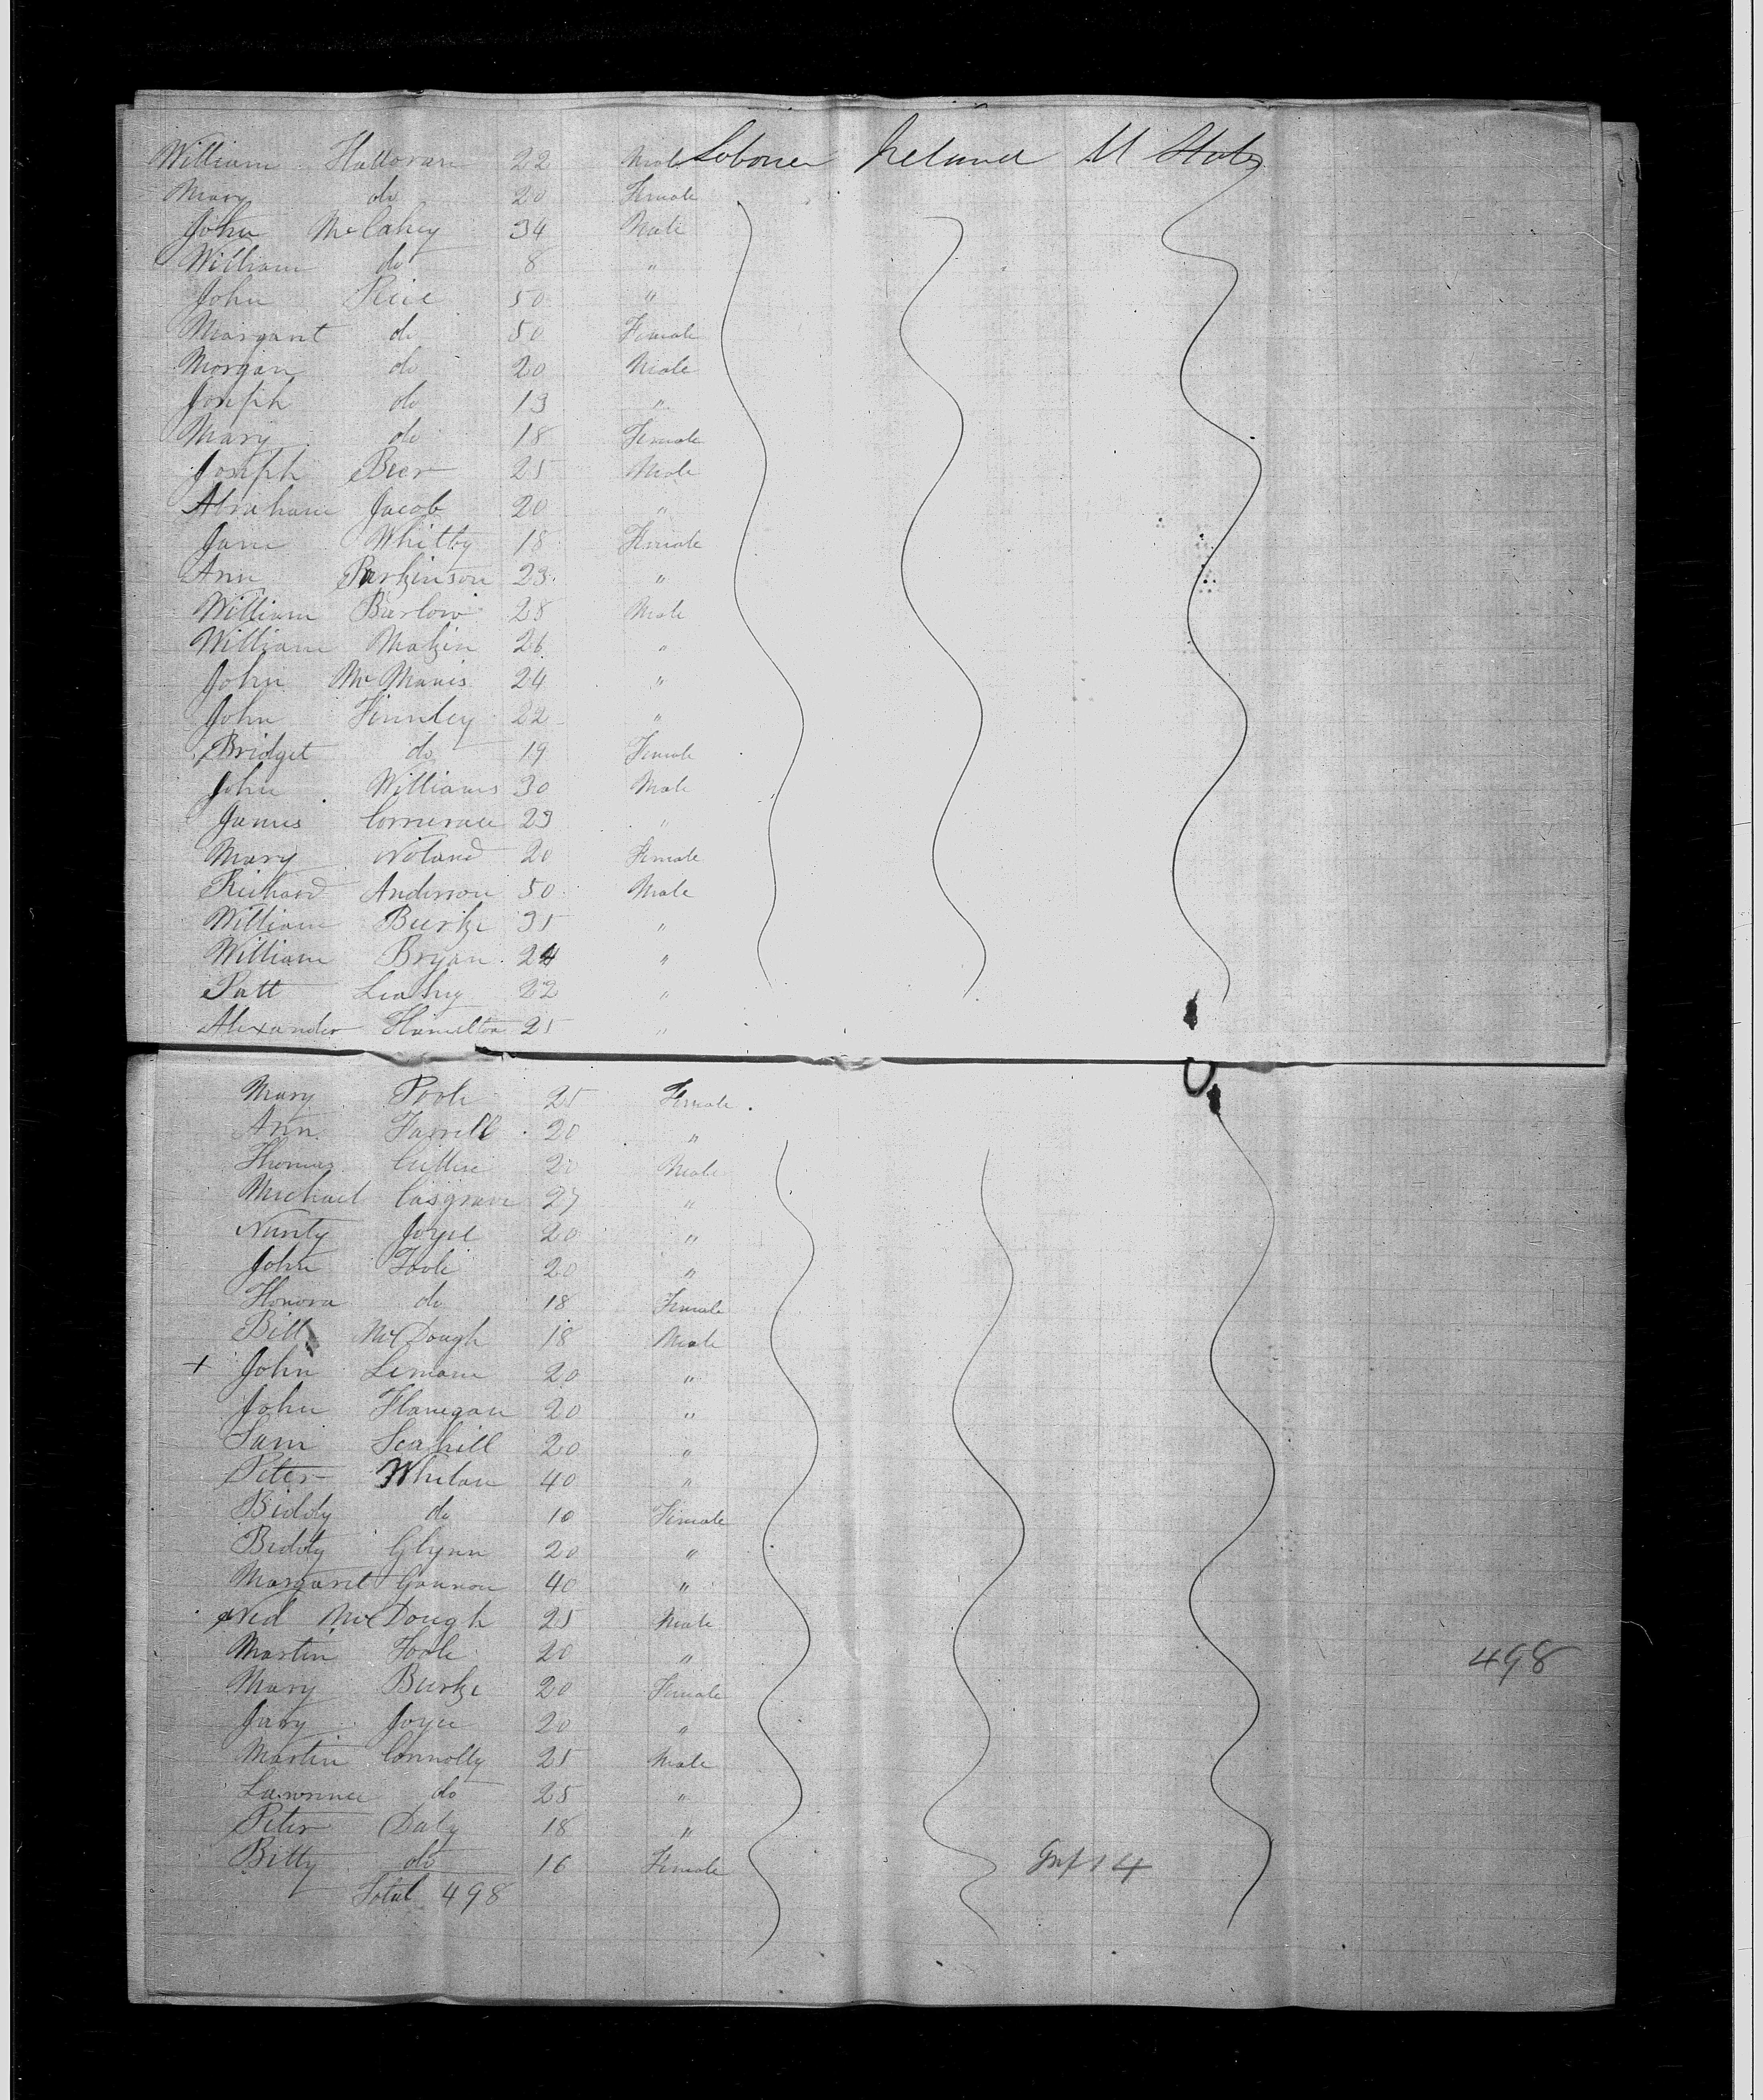 William Halloran 22 Male Laborer Ireland U States
Mary do 20 Female
John McCahey 34 Male
William do 8 "
John Rice 50 "
Margaret do 50 Female
Morgan do 20 Male
Joseph do 13 "
Mary do 18 Female
Joseph Beer 25 Male
Abraham Jacob 20 "
Jane Whitby 18 Female
Ann Parkinson 23 "
William Barlow 28 Male
William Makin 26 "
John McManis 24 "
John Finnley 22 "
Bridget do 19 Female
John Williams 30 Male
James 23 "
Mary Noland 20 Female
Richard Anderson 50 Male
William Burke 35 "
William Bryan 24 "
Patt Leahy 22 "
Alexander Hamelton 25 "
Mary Poole 25 Female
Ann Farrell 20 "
Thomas Cullin 20 Male
Michael Casgrave 27 "
Joyce 20 "
John Toole 20 "
Honora do 18 Female
Bill McDough 18 Male
+ John 20 "
John Flanegan 20 "
Scahill 20 "
Peter Whelan 40 "
Biddy do 10 Female
Biddy Glynn 20 "
Margaret Gannon 40 "
Ned McDough 25 Male
Martin Toole 20 "
498
Mary Burke 20 Female
Joyce 20 "
Martin Connolly 25 Male
Lawrence do 25 "
Peter Daly 18 "
Bitty do 16 Female
Inf 14
Total 498